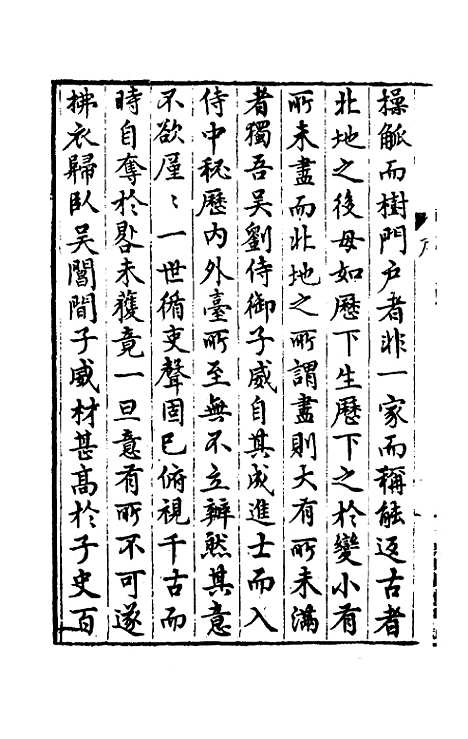 操觚而樹門户者非一家而稱能返古者
北地之後毋如歷下生歷下之於變小有
所未盡而北地之所謂盡則大有所未滿
者獨吾吳劉侍御子威自其成進士而入
侍中秘歷内外臺所至無不立辦然其意
不欲屑〻一世循吏聲固已俯視千古而
時自奪於晷未獲竟一旦意有所不可遂
拂衣歸臥吳閶間子威材甚高於子史百